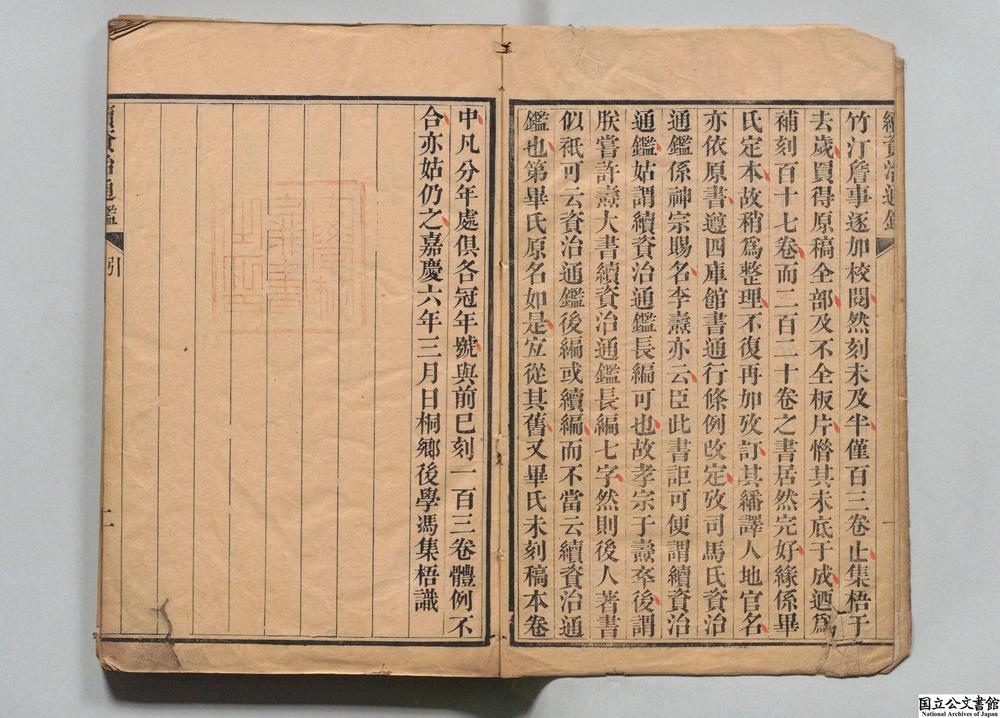 續資治通鑑
竹汀詹事逐加校閱然刻未及半僅百三卷止集梧于
去歲買得原稿全部及不全板片惜其未底于成迺爲
補刻百十七卷而二百二十卷之書居然完好緣係畢
氏定本故稍爲整理不復再加攷訂其繙譯人地官名
亦依原書遵四庫館書通行條例改定攷司馬氏資治
通鑑係神宗賜名李燾亦云臣此書詎可便謂續資治
通鑑姑謂續資治通鑑長編可也故孝宗于燾卒後謂
朕嘗許燾大書續資治通鑑長編七字然則後人著書
似祇可云資治通鑑後編或續編而不當云續資治通
鑑也第畢氏原名如是宜從其舊又畢氏未刻稿本卷
中凡分年處俱各冠年號與前已刻一百三卷體例不
合亦姑仍之嘉慶六年三月日桐鄉後學馮集梧識
續資治通鑑
引
一
国立公文書館
National Archives of Japan